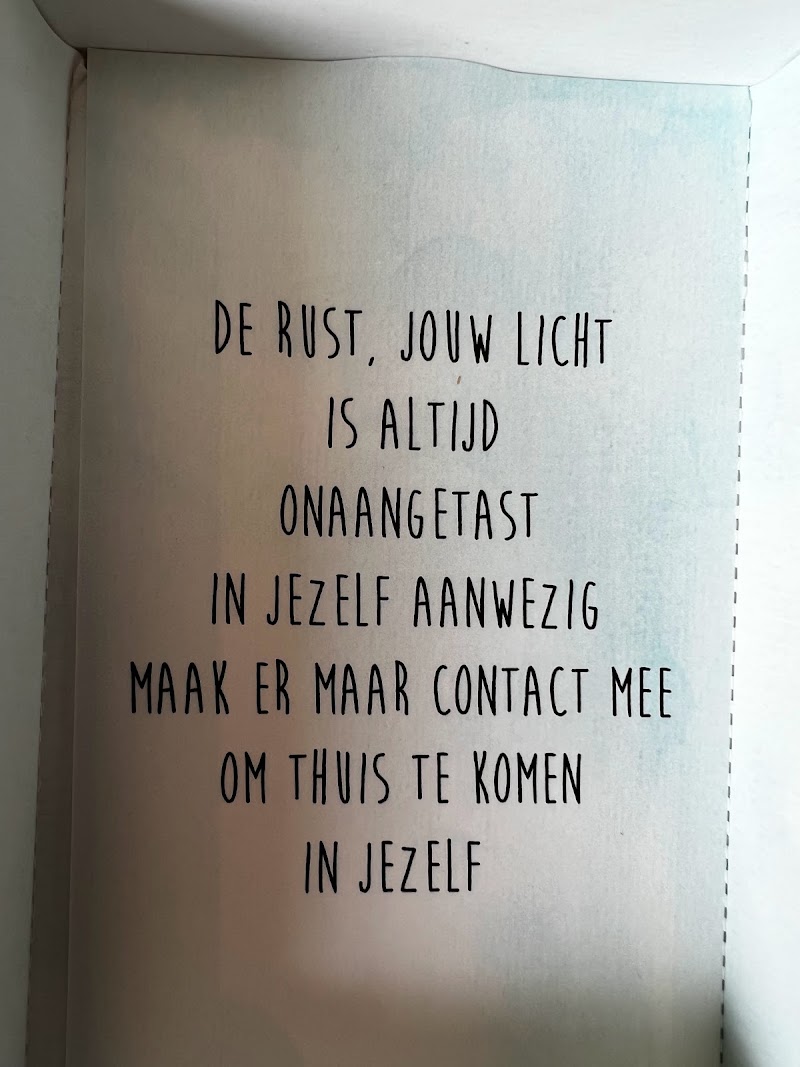 DE RUST, JOUW LICHT
IS ALTIJD
ONAANGETAST
IN JEZELF AANWEZIG
MAAK ER MAAR CONTACT MEE
OM THUIS TE KOMEN
IN JEZELF